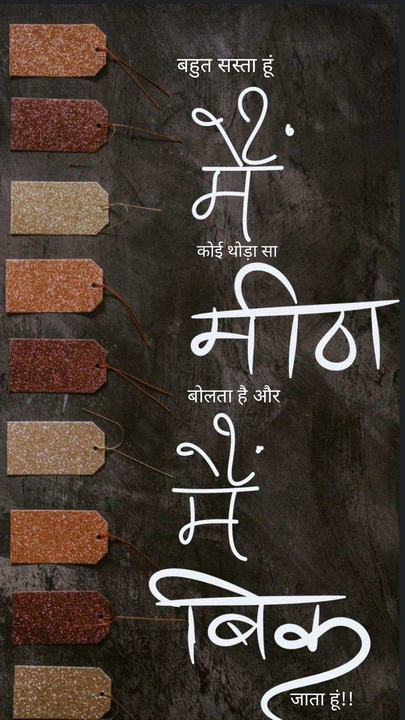 बहुत सस्ता हूं
मैं
कोई थोड़ा सा
मीठा
बोलता है और
मैं
बिक
जाता हूं!!